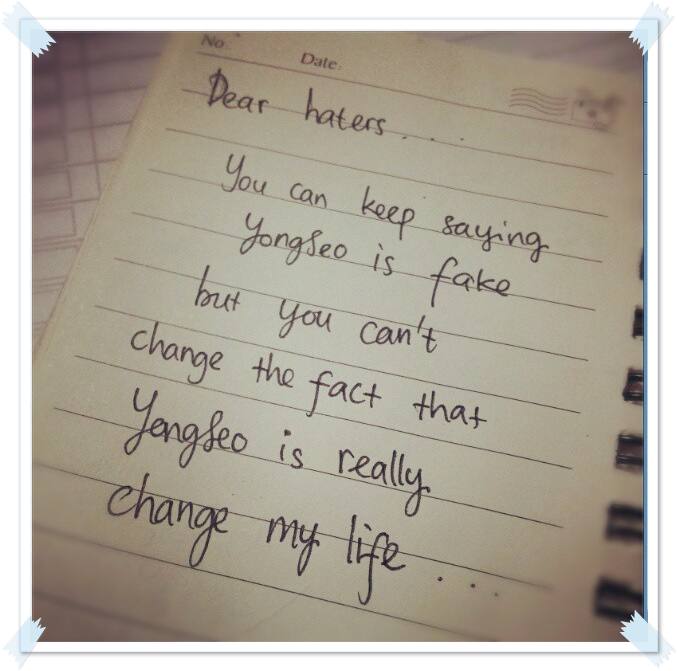 No.
Date.
Dear haters....
You can keep saying
YongSeo is fake
but you can't
change the fact that
YongSeo is really
change my life....